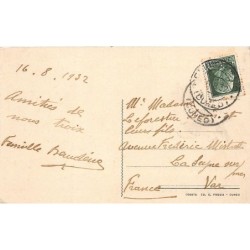 16-8-1932
Amitiés de
nous trois
Famille
Mr Madame
Leforestier et
leurs fils
Avenue Frédéric Mistral
La Seyne sur
mer
Var
France